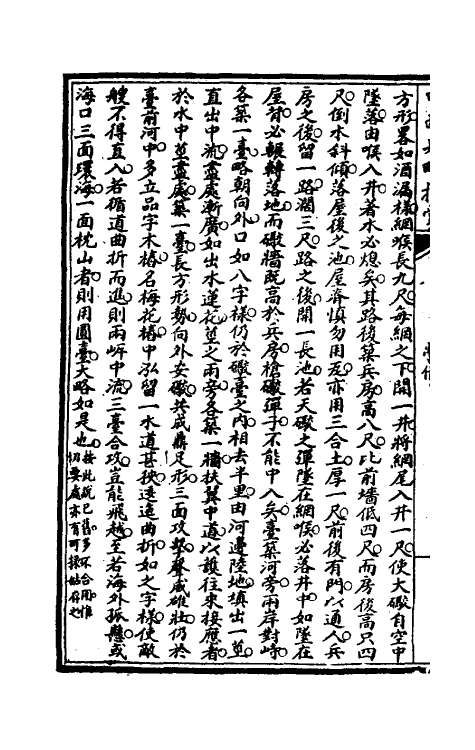 方形畧如酒漏樣網喉長九尺每網之下開一井將網尾入井一尺使大礮自空中
墜落由喉入井著水必熄矣其路後築兵房高八尺比前墻低四尺而房後高只四
尺倒木斜傾落屋後之池屋脊慎勿用瓦亦用三合土厚一尺前後有門以通人兵
房之後留一路濶三尺路之後開一長池若天礮之彈墜在網喉必落井中如墜在
屋背必輾轉落地而礮牆既高於兵房槍礮彈子不能中入矣臺築河旁兩岸對峙
各築一臺略朝向外口如八字樣仍於礮臺之內相去半里由河邊陸地填出一茔
直出中流盡處漸廣如出水蓮花茔之兩旁各築一牆扶翼中道以護往來接應者
於水中茔盡處築一臺長方形勢向外安礮共成鼎足形三面攻擊聲威雄壯仍於
臺前河中多立品字木樁名梅花樁中泓留一水道甚狹逶迤曲折如之字樣使敵
艘不得直入若循道曲折而進則兩岍中流三臺合攻豈能飛越至若海外孤懸或
海口三面環海一面枕山者則用圓臺大略如是也
按此說已舊多不合用惟
切要處亦有可採姑存之